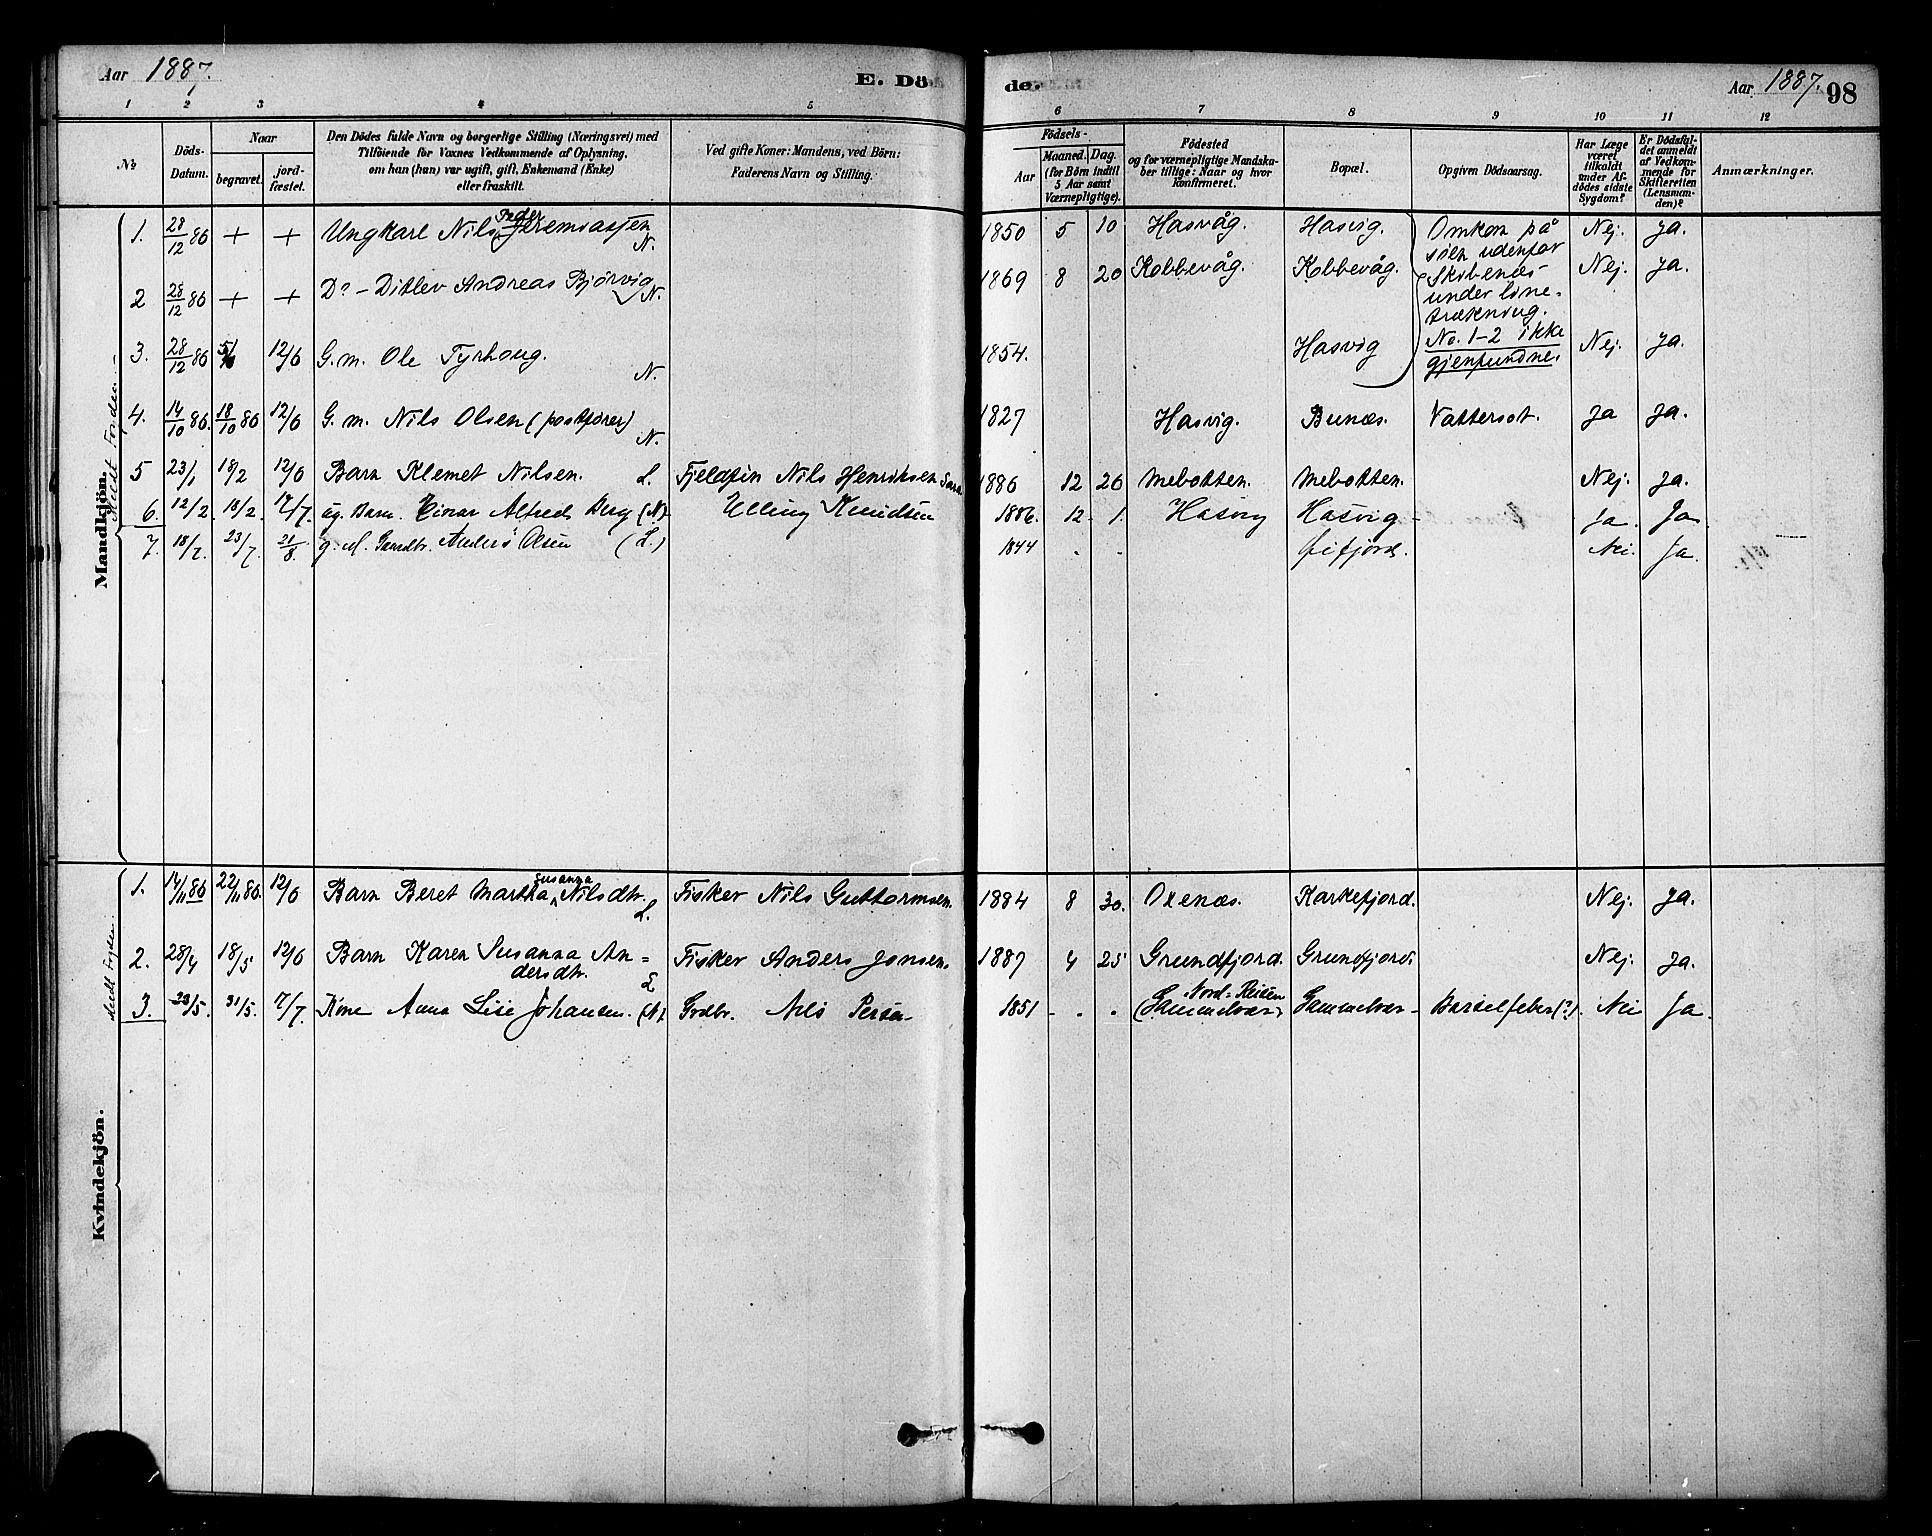 Aar 1887.
E. Dö
de.
Aar 1887.
98
1 2 3 4 5 6 7 8 9 10 11 12
No
Döds-Datum.
Naar
begravet.
jord-fæstet.
Den Dödes fulde Navn og borgerlige Stilling (Næringsvei) med
Tilföiende for Voxnes Vedkommende af Oplysning,
om han (hun) var ugift, gift, Enkemand (Enke)
eller fraskilt.
Ved gifte Koner: Mandens, ved Börn:
Faderens Navn og Stilling.
Födsels-
Aar
Maaned. Dag.
(for Börn indtil
5 Aar samt
Værnepligtige).
Födested
og for værnepligtige Mandska-
ber tillige: Naar og hvor
konfirmeret.
Bopæl.
Opgiven Dödsaarsag.
Har Læge
været
tilkaldt
under Af-
dödes sidste
Sygdom?
Er Dödsfal-
det anmeldt
af Vedkom-
mende for
Skifteretten
(Lensman-
den)?
Anmærkninger.
Mandkjön.
1. 28/12 86 + + Ungkarl Nils Peder Jeremiassen N. 1850 5 10 Hasvåg. Hasvig. Omkom på Nej. ja.
søen udenfor
2 28/12 86 + + Do – Ditlev Andreas Bjørvig N. 1869 8 20 Kobbevåg. Kobbevåg. Nej. ja.
under line-
trækning.
3. 28/12 86 12/6 G.m. Ole Tyrhoug. N. 1854. Hasvig No. 1-2 ikke Nej. ja.
gjenfundne.
4. 14/10 86. 18/10 86 12/6 G.m. Nils Olsen (postfører) N. 1827 Hasvig. Bunæs. Vattersot. ja ja.
5 23/1 18/2 12/6 Barn Klemet Nilsen. L. Fjeldfin Nils Henriksen Sara 1886 12 26 Mebotten. Mebotten. Nej. ja.
6. 12/2. 18/2. 7/7. ug. Barn. Einar Alfred Berg (N). Elling Knudsen 1886. 12. 1. Hasvig Hasvig Ja. Ja
7. 18/7. 23/7. 21/8. g. M. Gaardbr. Anders Olsen (L.) 1844 - - Nei. Ja.
Kvindekjön.
1. 14/11 86 22/11 86. 12/6 Barn Beret Martha Susanna Nilsdtr. L. Fisker Nils Guttormsen. 1884 8 30. Oxenæs. Karkefjord. Nej. ja.
2. 28/4 18/5 12/6 Barn Karen Susanna An=
dersdtr. L Fisker Anders Jonsen. 1887 4 25 Grundfjord. Grundfjord. Nej. ja.
3. 23/5. 31/5. 7/7. Kone Anna Lise Johansen. (N). Grdbr. Nils Persen 1851 - . . Nord-Reisen
(Gammelvær) Gammelvær Barselfeber (?). Nei Ja.